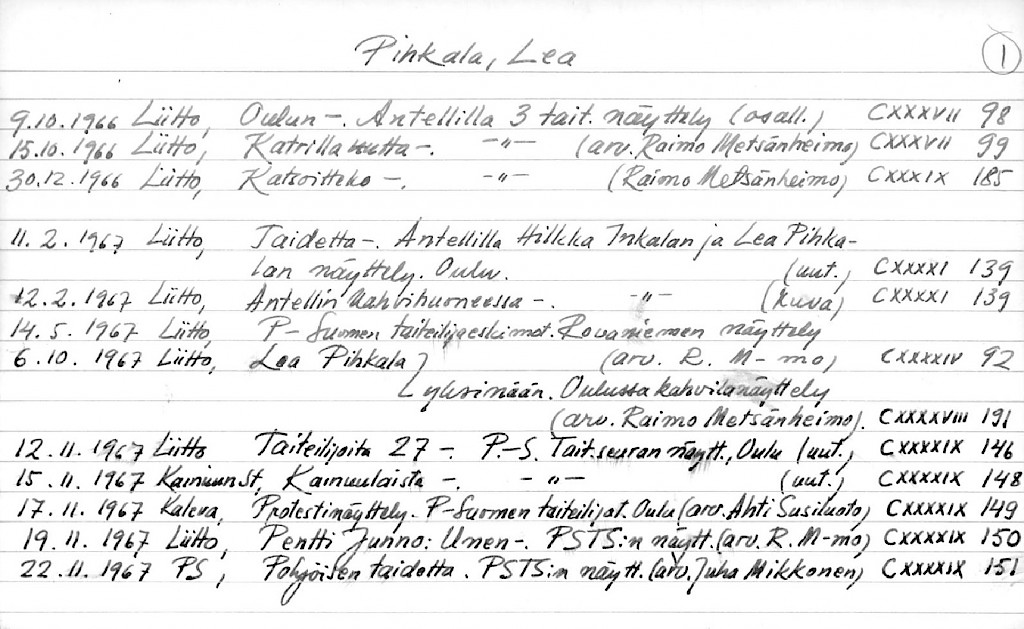 Pihkala, Lea 1
9.10.1966 Liitto, Oulun -. Antellilla 3 tait. näyttely (osall.) CXXXVII 98
15.10.1966 Liitto, Katrilla -. -"- (arv. Raimo Metsänheimo) CXXXVII 99
30.12.1966 Liitto, Katsoitteko -. -"- (Raimo Metsänheimo) CXXXIX 185
11. 2. 1967 Liitto, Taidetta -. Antellilla Hilkka Inkalan ja Lea Pihka-
lan näyttely. Oulu. (uut.) CXXXXI 139
12.2.1967 Liitto, Antellin kahvihuoneessa -. -"- (kuva) CXXXXI 139
14. 5. 1967 Liitto, P-Suomen taiteilijaeskimot. Rovaniemen näyttely
(arv. R. M-mo) CXXXXIV 92
6.10. 1967 Liitto, Lea Pihkala
yksinään. Oulussa kahvilanäyttely
(arv. Raimo Metsänheimo). CXXXXVIII 191
12.11.1967 Liitto Taiteilijoita 27 -. P.-S. Tait.seuran näytt., Oulu (uut.) CXXXXIX 146
15. 11. 1967 KainuunSt, Kainuulaista -. -"- (uut.) CXXXXIX 148
17.11.1967 Kaleva, Protestinäyttely. P-Suomen taiteilijat. Oulu (arv. Ahti Susiluoto) CXXXXIX 149
19.11.1967 Liitto, Pentti Junno: Unen-. PSTS:n näytt. (arv. R. M-mo) CXXXXIX 150
22.11.1967 PS, Pohjoisen taidetta. PSTS:n näytt. (arv. Juha Mikkonen) CXXXXIX 151